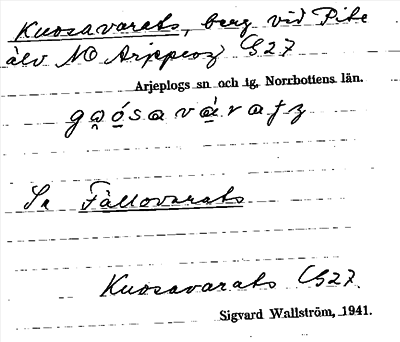 Kuosavarats, berg vid Pite
älv NO Arjeplog G27
Arjeplogs sn och tg, Norrbottens län.
Se Fållovarats
Kuosavarats G27.
Sigvard Wallström, 1941.